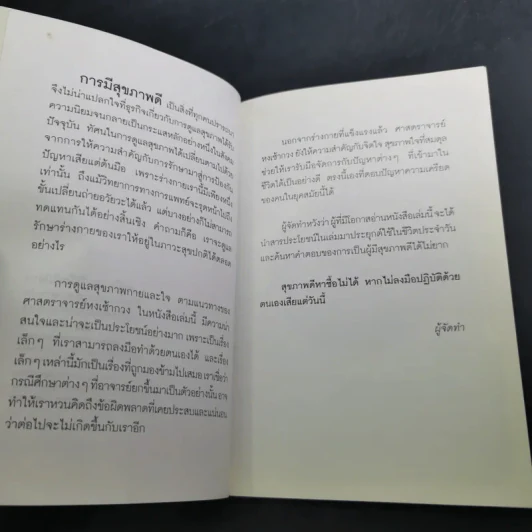 การมีสุขภาพดี เป็นสิ่งที่ทุกคนปรารถนา
จึงไม่น่าแปลกใจที่ธุรกิจเกี่ยวกับการดูแลสุขภาพได้รับ
ความนิยมจนกลายเป็นกระแสหลักอย่างหนึ่งในสังคม
ปัจจุบัน ทัศนในการดูแลสุขภาพก็เปลี่ยนตามไปด้วย
จากการให้ความสำคัญกับการรักษามาสู่การป้องกัน
ปัญหาเสียแต่ต้นมือ เพราะร่างกายเรานี้มีเพียงหนึ่ง
เท่านั้น ถึงแม้วิทยาการทางการแพทย์จะรุดหน้าไปถึง
ขั้นเปลี่ยนถ่ายอวัยวะได้แล้ว แต่บางอย่างก็ไม่สามารถ
ทดแทนกันได้อย่างสิ้นเชิง คำถามก็คือ เราจะดูแล
รักษาร่างกายของเราให้อยู่ในภาวะสุขปกติได้ตลอด
อย่างไร
การดูแลสุขภาพกายและใจ ตามแนวทางของ
ศาสตราจารย์หงเจ้ากวง ในหนังสือเล่มนี้ มีความน่า
สนใจและน่าจะเป็นประโยชน์อย่างมาก เพราะเป็นเรื่อง
เล็กๆ ที่เราสามารถลงมือทำด้วยตนเองได้ และเรื่อง
เล็กๆ เหล่านี้มักเป็นเรื่องที่ถูกมองข้ามไปเสมอ เราเชื่อว่า
กรณีศึกษาต่างๆ ที่อาจารย์ยกขึ้นมาเป็นตัวอย่างนั้น อาจ
ทำให้เราหวนคิดถึงข้อผิดพลาดที่เคยประสบและแน่นอน
ว่าต่อไปจะไม่เกิดขึ้นกับเราอีก
นอกจากร่างกายที่แข็งแรงแล้ว ศาสตราจารย์
หงเจ้ากวง ยังให้ความสำคัญกับจิตใจ สุขภาพใจที่สมดุล
ช่วยให้เรารับมือจัดการกับปัญหาต่างๆ ที่เข้ามาใน
ชีวิตได้เป็นอย่างดี ตรงนี้เองที่ตอบปัญหาความเครียด
ของคนในยุคสมัยนี้ได้
ผู้จัดทำหวังว่า ผู้ที่มีโอกาสอ่านหนังสือเล่มนี้ จะได้
นำสารประโยชน์ในเล่มมาประยุกต์ใช้ในชีวิตประจำวัน
และค้นหาคำตอบของการเป็นผู้มีสุขภาพดีได้ไม่ยาก
สุขภาพดีหาซื้อไม่ได้ หากไม่ลงมือปฏิบัติด้วย
ตนเองเสียแต่วันนี้
ผู้จัดทำ